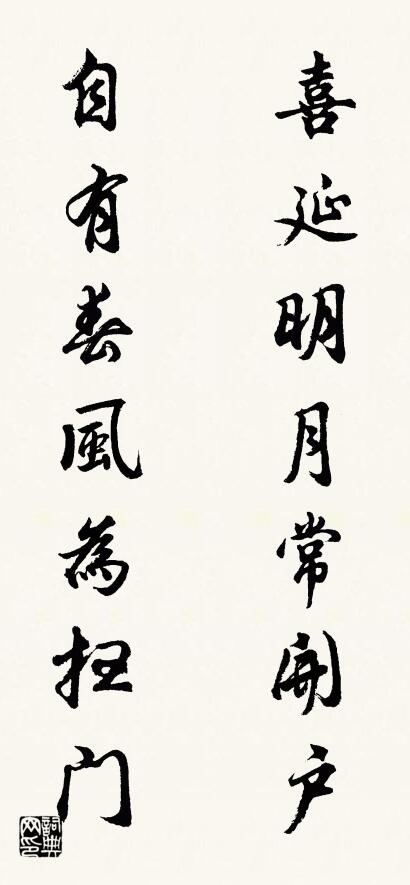 喜延明月常開户
自有春風為掃门
詞典网印